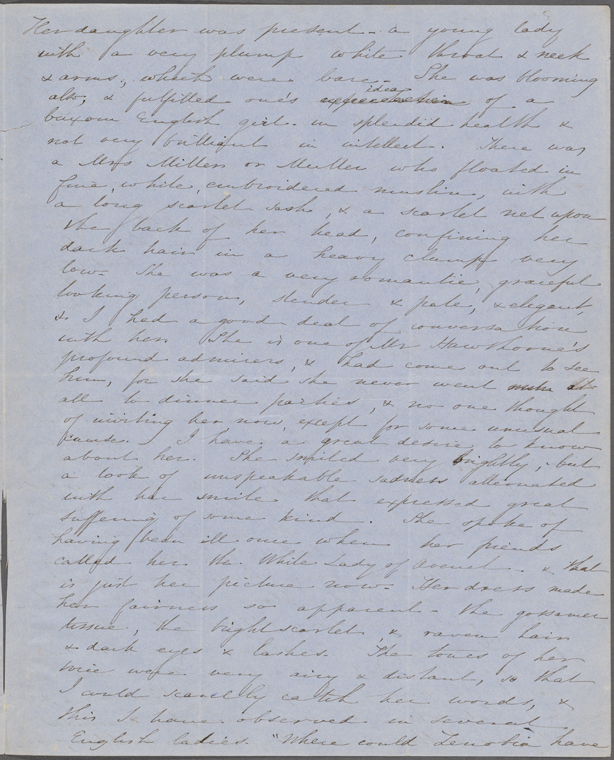 Her daughter was present - a young lady
with a very plump white throat & neck
& arms, which were bare. She was blooming
also, & fulfilled one's idea of a
buxom English girl - in splendid health &
not very brilliant in intellect. There was
a Mrs Millers or Muller who floated in
fine, white, embroidered muslin, with
a long scarlet sash, & a scarlet net upon
the back of her head, confining her
dark hair in a heavy clump very
low. She was a very romantic, graceful
looking person, slender & pale, & elegant,
& I had a good deal of conversation
with her. She is one of Mr Hawthorne's
profound admirers, & had come out to see
him, for she said she never went at
all to dinner parties, & no one thought
of inviting her now, except for some unusual
cause. I have a great desire to know
about her. She smiled very brightly, but
a look of unspeakable sadness alternated
with her smile that expressed great
suffering of some kind. She spoke of
having been ill once when her friends
called her the White Lady of Avenel - & that
is just her picture now. Her dress made
her fairness so apparent - the gossamer
tissue, the bright scarlet, & raven hair
& dark eyes & lashes. The tones of her
voice were very airy & distant, so that
I could scarcely catch her words, &
this I have observed in several
English ladies. "Where could Zenobia have